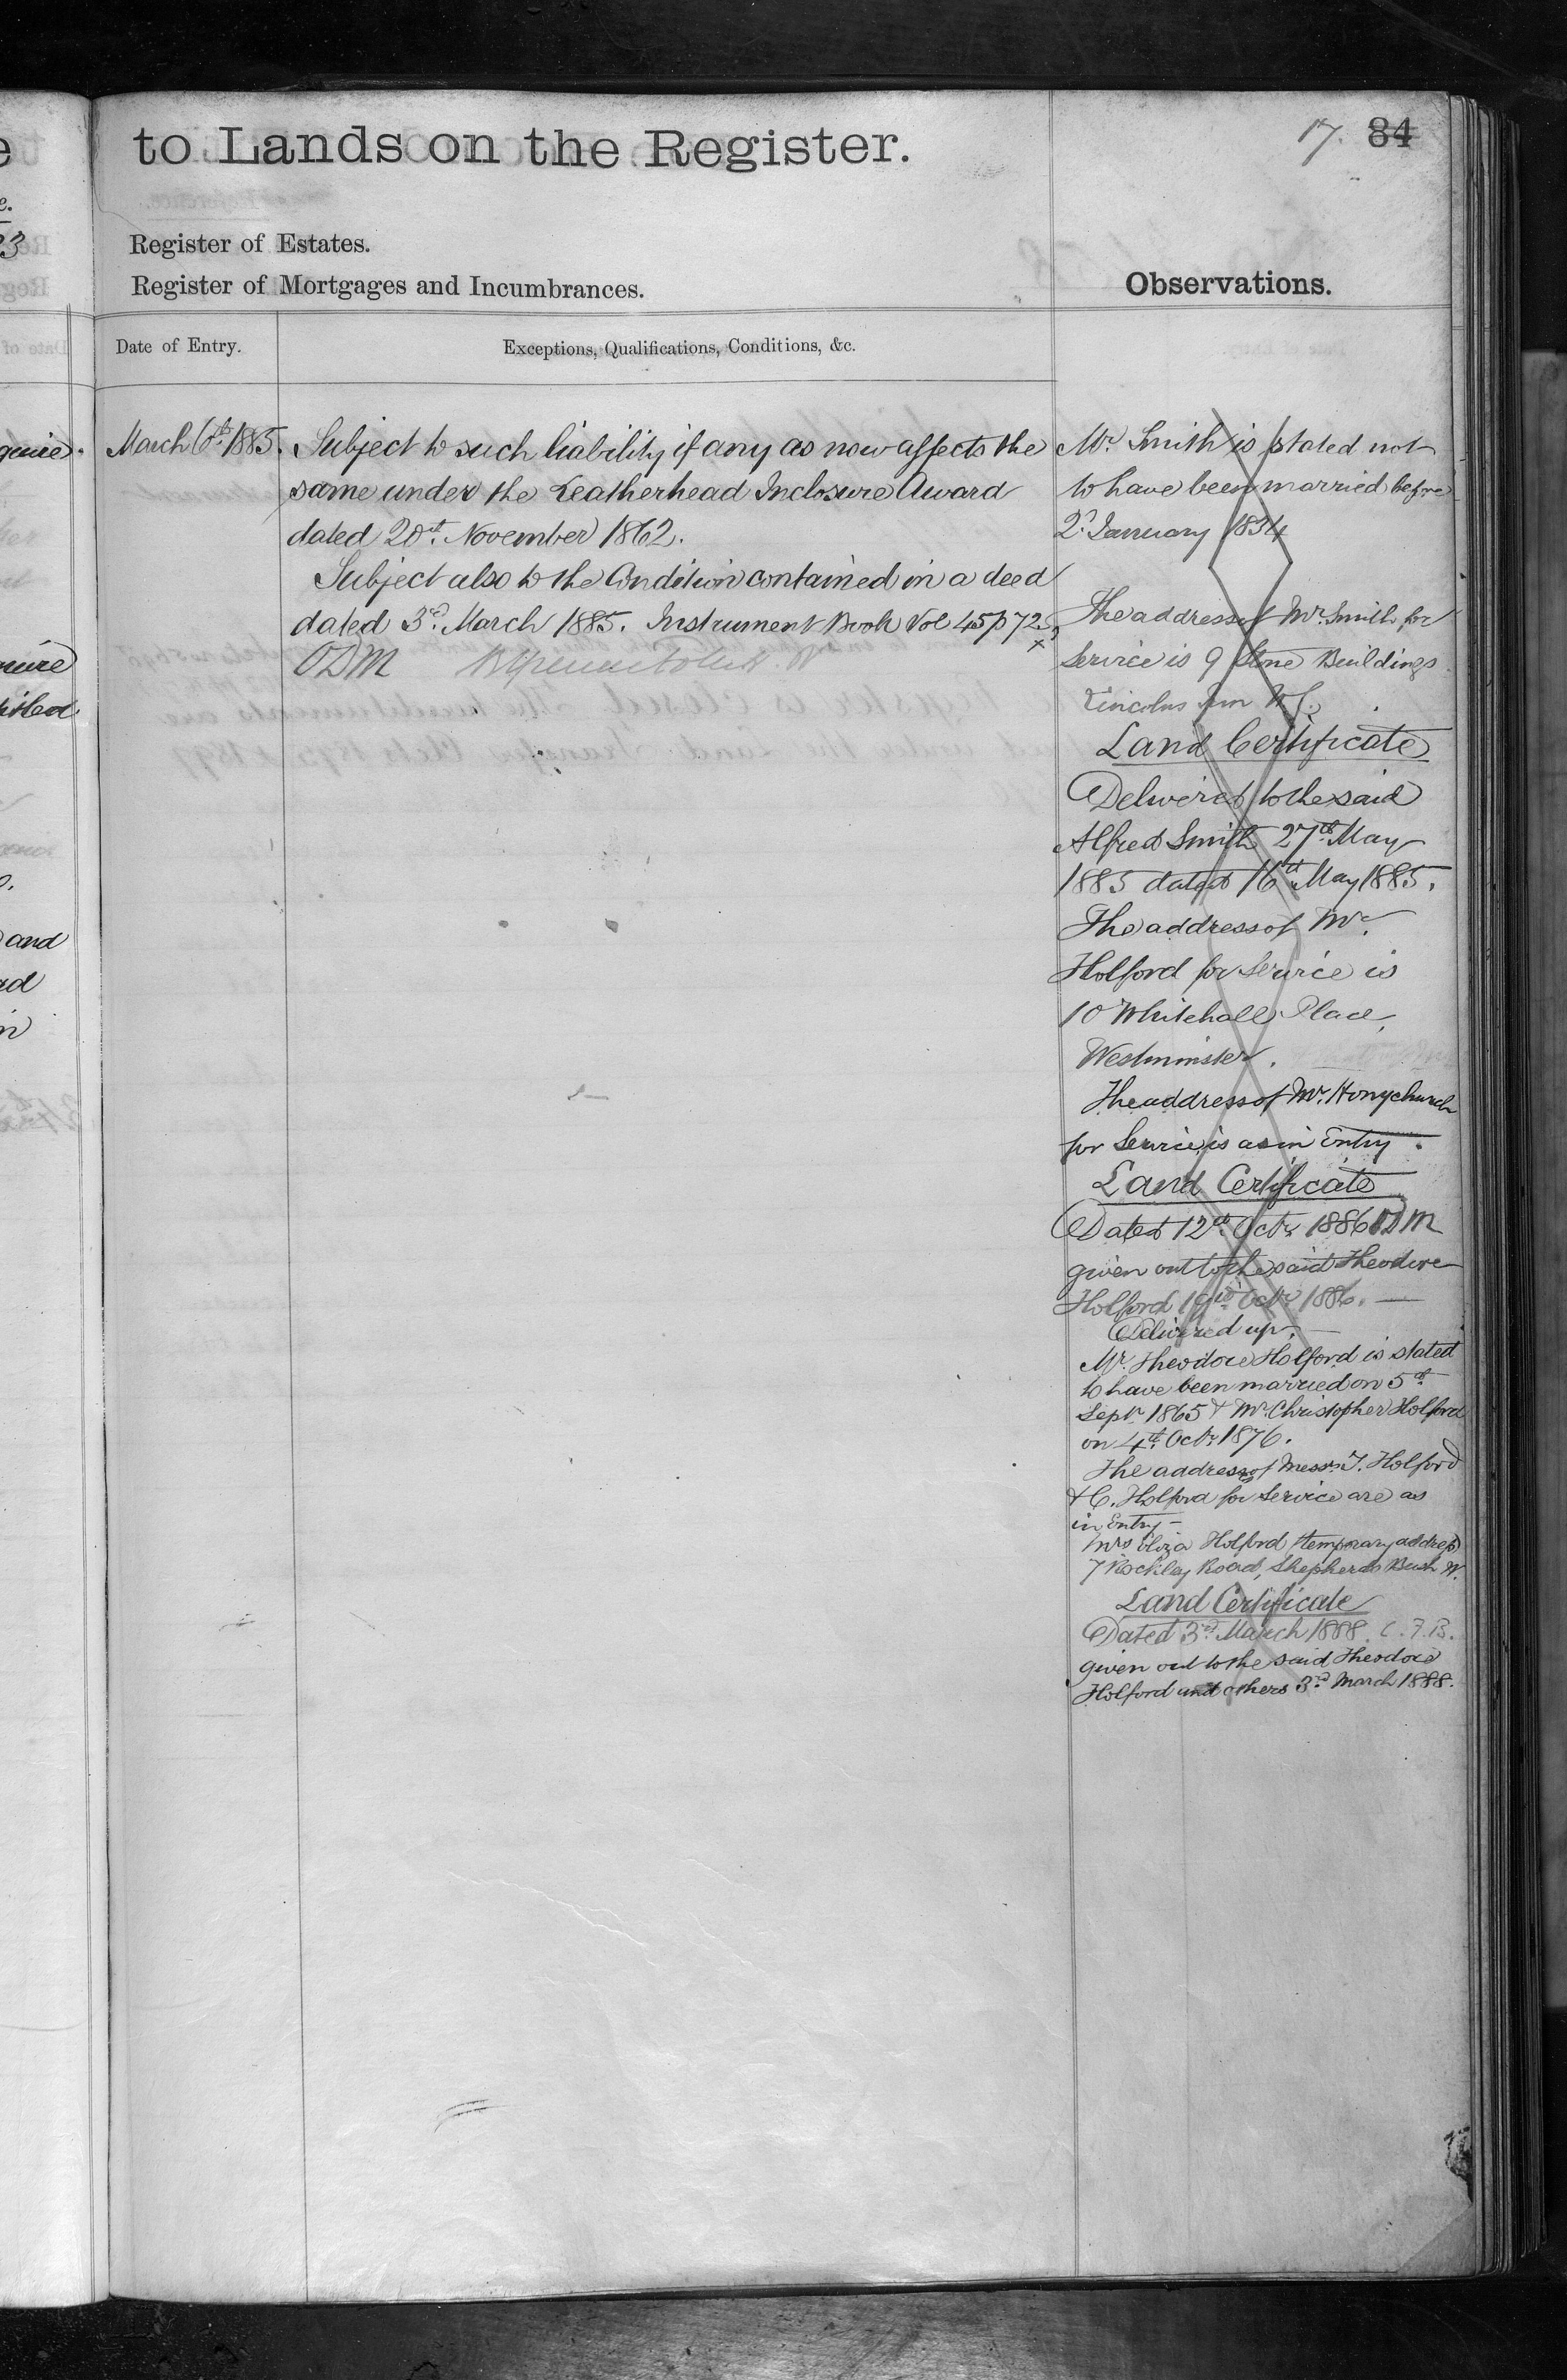 to Lands on the Register.
17. 84
Register of Estates.
Register of Mortgages and Incumbrances.
Observations.
Date of Entry.
Exceptions, Qualifications, Conditions, &c.
March 6th 1885.
Subject to such liability if any as now affects the
same under the Leatherhead Inclosure Award
dated 20th November 1862.
Subject also to the Condition contained in a deed
dated 3rd March 1885. Instrument Book Vol 45 p 72
ODM
Mr Smith is stated not
to have been married before
2d January 1834
The address of Mr. Smith for
Service is 9 Stone Buildings
Lincolns Inn
Land Certificate
Delivered to the said
Alfred Smith 27th May
1885 dated 16th May 1885.
The address of Mr.
Holford for Service is
10 Whitehall Place,
Westminster.
The address of Mr. Honychurch
for Service is as in Entry.
Land Certificate
Dated 12th Octr 1886 ODM
given out to the said Theodore
Holford 19th Octr 1886. —
Delivered up. —
Mr. Theodore Holford is stated
to have been married on 5th
Septr 1865 & Mr Christopher Holford
on 4th Octr 1876.
The address of Messrs T. Holford
& C. Holford for Service are as
in Entry —
Mrs Eliza Holford, temporary address
7 Rockley Road, Shepherds Bush W.
Land Certificate
Dated 3rd March 1888. C.F.B.
given out to the said Theodore
Holford and others 3rd March 1888.
quire.
quire
and
ad
in